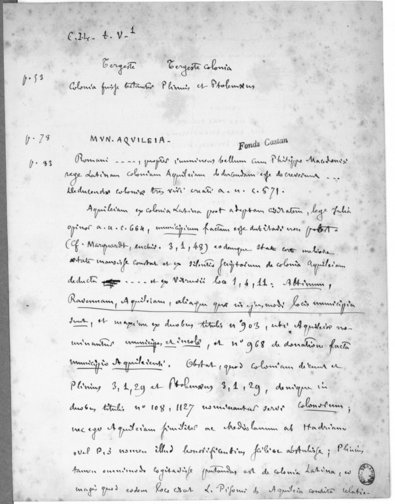 C.I.L. t. V.1
Tergeste Tergeste colonia
p. 53
Colonia fuisse testantur Plinius et Ptolemaeus
p. 78
MVN. AQVILEIA.
Fonds Castan
p. 83
Romani ...., propter imminens bellum cum Philippo Macedoniae
rege Latinam coloniam Aquileiam deducendam esse decreverunt ...
deducendae coloniae tres viri creati a. u. c. 571.
Aquileiam ex colonia Latina post adeptam civitatem, lege Julia
opinor a. u. c. 664, municipium factam esse dubitari nec potest
(Cf. Marquardt, enchir. 3, 1, 48) eodemque statu
aetate mansisse constat et ex silentio scriptorum de colonia Aquileiam
deducta .... et ex Vitruvii loco 1, 4, 11: Altinum,
Ravennam, Aquileiam, aliaque quae in ejusmodi locis municipia
sunt, et maxime ex duobus titulis n° 903, ubi Aquileiae no-
minantur municipes et incolae, et n° 968 de donatione facta
municipio Aquileiensi. Obstat, quod coloniam dicunt et
Plinius 3, 1, 29 et Ptolemaeus 3, 1, 29, denique in
duobus titulis n° 108, 1127 nominantur servi colonorum;
nec ego Aquileiam similiter ac Mediolanum ab Hadriano
vel P.3 nomen illud honorificentius scilicet abstulisse; Plinium
tamen omnimodo cogitavisse putandus est de colonia Latina, eo
magis quod eodem loco citat L. Pisonis de Aquileia condita